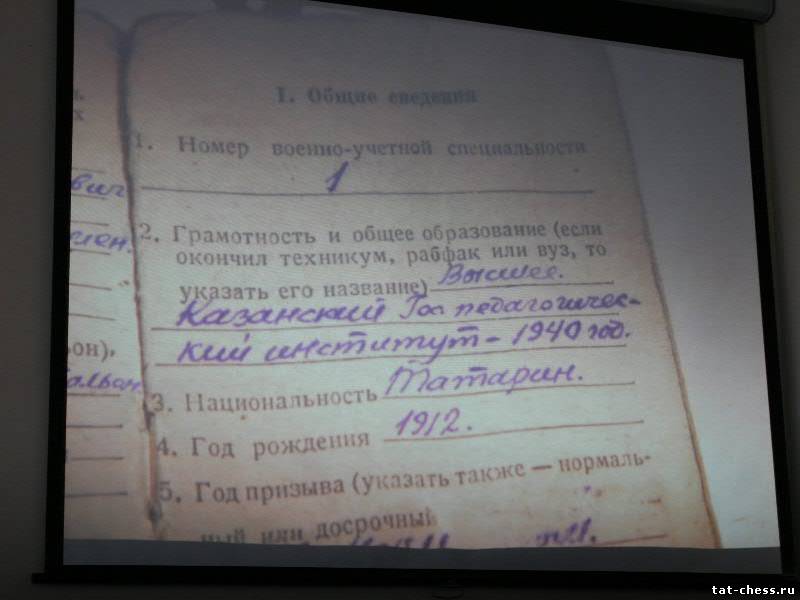 I. Общие сведения
1. Номер военно-учетной специальности
1
2. Грамотность и общее образование (если
окончил техникум, рабфак или вуз, то
указать его название) Высшее.
Казанский Гос педагогичес-
кий институт - 1940 год.
3. Национальность Татарин.
4. Год рождения 1912.
5. Год призыва (указать также — нормаль-
ный или досрочный
вич
он),
tat-chess.ru